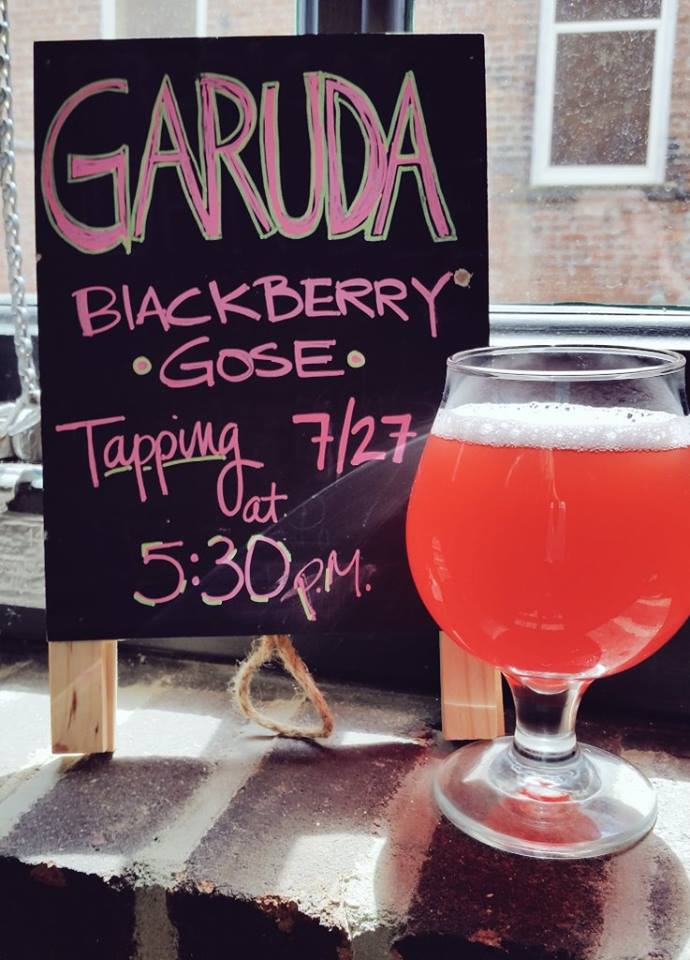 GARUDA
BlACKBERRY
• GOSE •
Tapping 7/27
at
5:30 P.M.